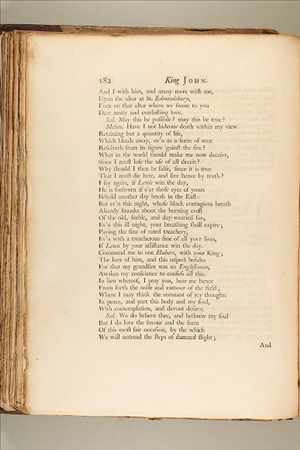 182 King JOHN.
And I with him, and many more with me,
Upon the altar at St. Edmondsbury,
Even on that altar where we swore to you
Dear amity and everlasting love.
Sal. May this be possible? may this be true?
Melun. Have I not hideous death within my view
Retaining but a quantity of life,
Which bleeds away, ev'n as a form of wax
Resolveth from its figure 'gainst the fire?
What in the world should make me now deceive,
Since I must lose the use of all deceit?
Why should I then be false, since it is true
That I must die here, and live hence by truth?
I say again, if Lewis win the day,
He is forsworn if e'er those eyes of yours
Behold another day break in the East:
But ev'n this night, whose black contagious breath
Already smoaks about the burning crest
Of the old, feeble, and day-wearied sun,
Ev'n this ill night, your breathing shall expire;
Paying the fine of rated treachery,
Ev'n with a treacherous fine of all your lives,
If Lewis by your assistance win the day.
Commend me to one Hubert, with your King;
The love of him, and this respect besides
For that my grandsire was an Englishman,
Awakes my conscience to confess all this.
In lieu whereof, I pray you, bear me hence
From forth the noise and rumour of the field;
Where I may think the remnant of my thoughts
In peace, and part this body and my soul,
With contemplation, and devout desires.
Sal. We do believe thee, and beshrew my soul
But I do love the favour and the form
Of this most fair occasion, by the which
We will untread the steps of damned flight;
And